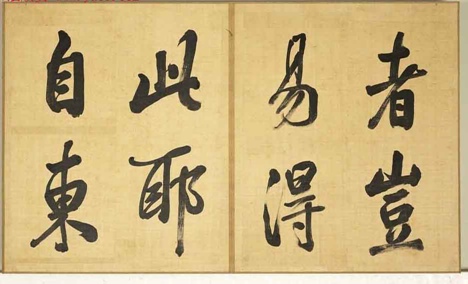 者豈
易得
此耶
自東